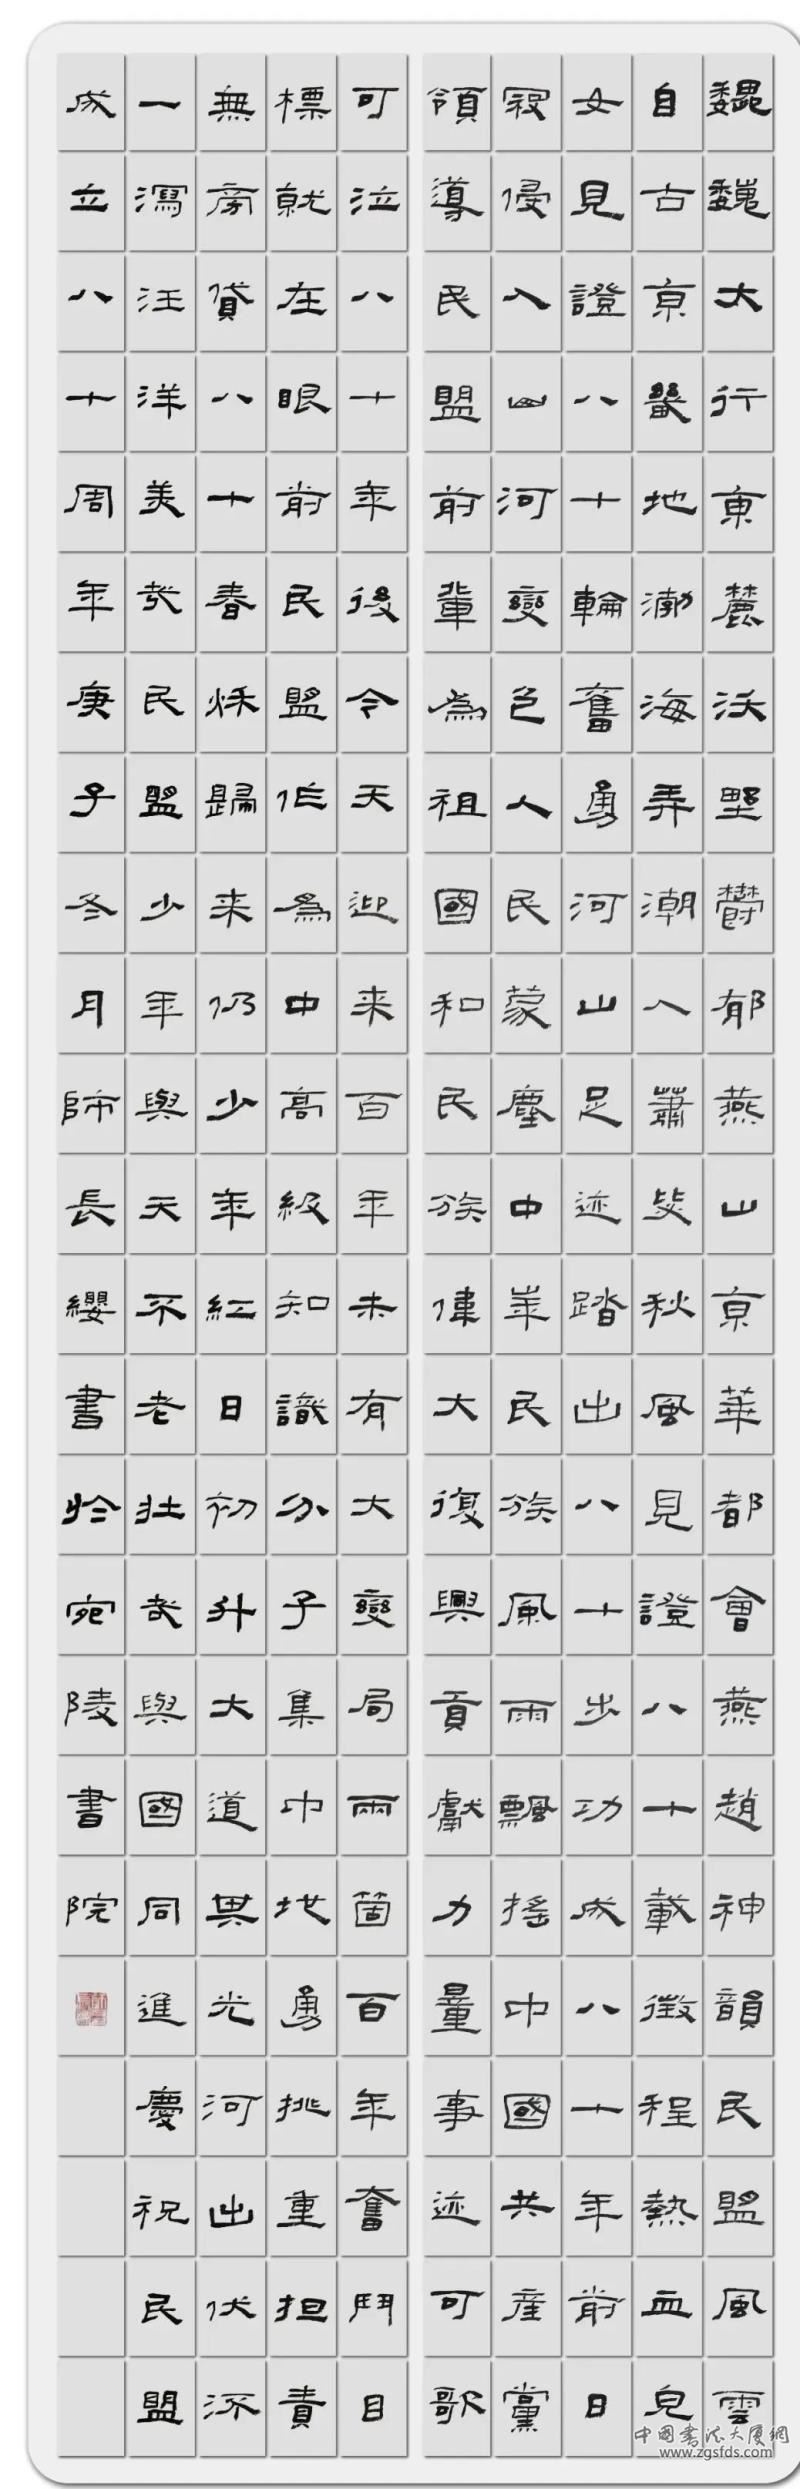 巍巍太行東麓沃野鬱郁燕山京華都會燕趙神韻民盟風雲
自古京畿地渤海弄潮人蕭瑟秋風見證八十載徵程熱血兒
女見證八十輪奮勇河山足迹踏出八十步功成八十年前日
寇侵入山河變色人民蒙塵中華民族風雨飄搖中國共產黨
領導民盟前輩為祖國和民族偉大復興貢獻力量事迹可歌
可泣八十年後今天迎来百年未有大變局兩箇百年奮鬥目
標就在眼前民盟作為中高級知識分子集中地勇挑重担責
無旁貸八十春秋歸来仍少年紅日初升大道其光河出伏流
一瀉汪洋美哉民盟少年與天不老壯哉與國同進慶祝民盟
成立八十周年庚子冬月師長纓書於宛陵書院
中國書法大厦網
www.zgsfds.com